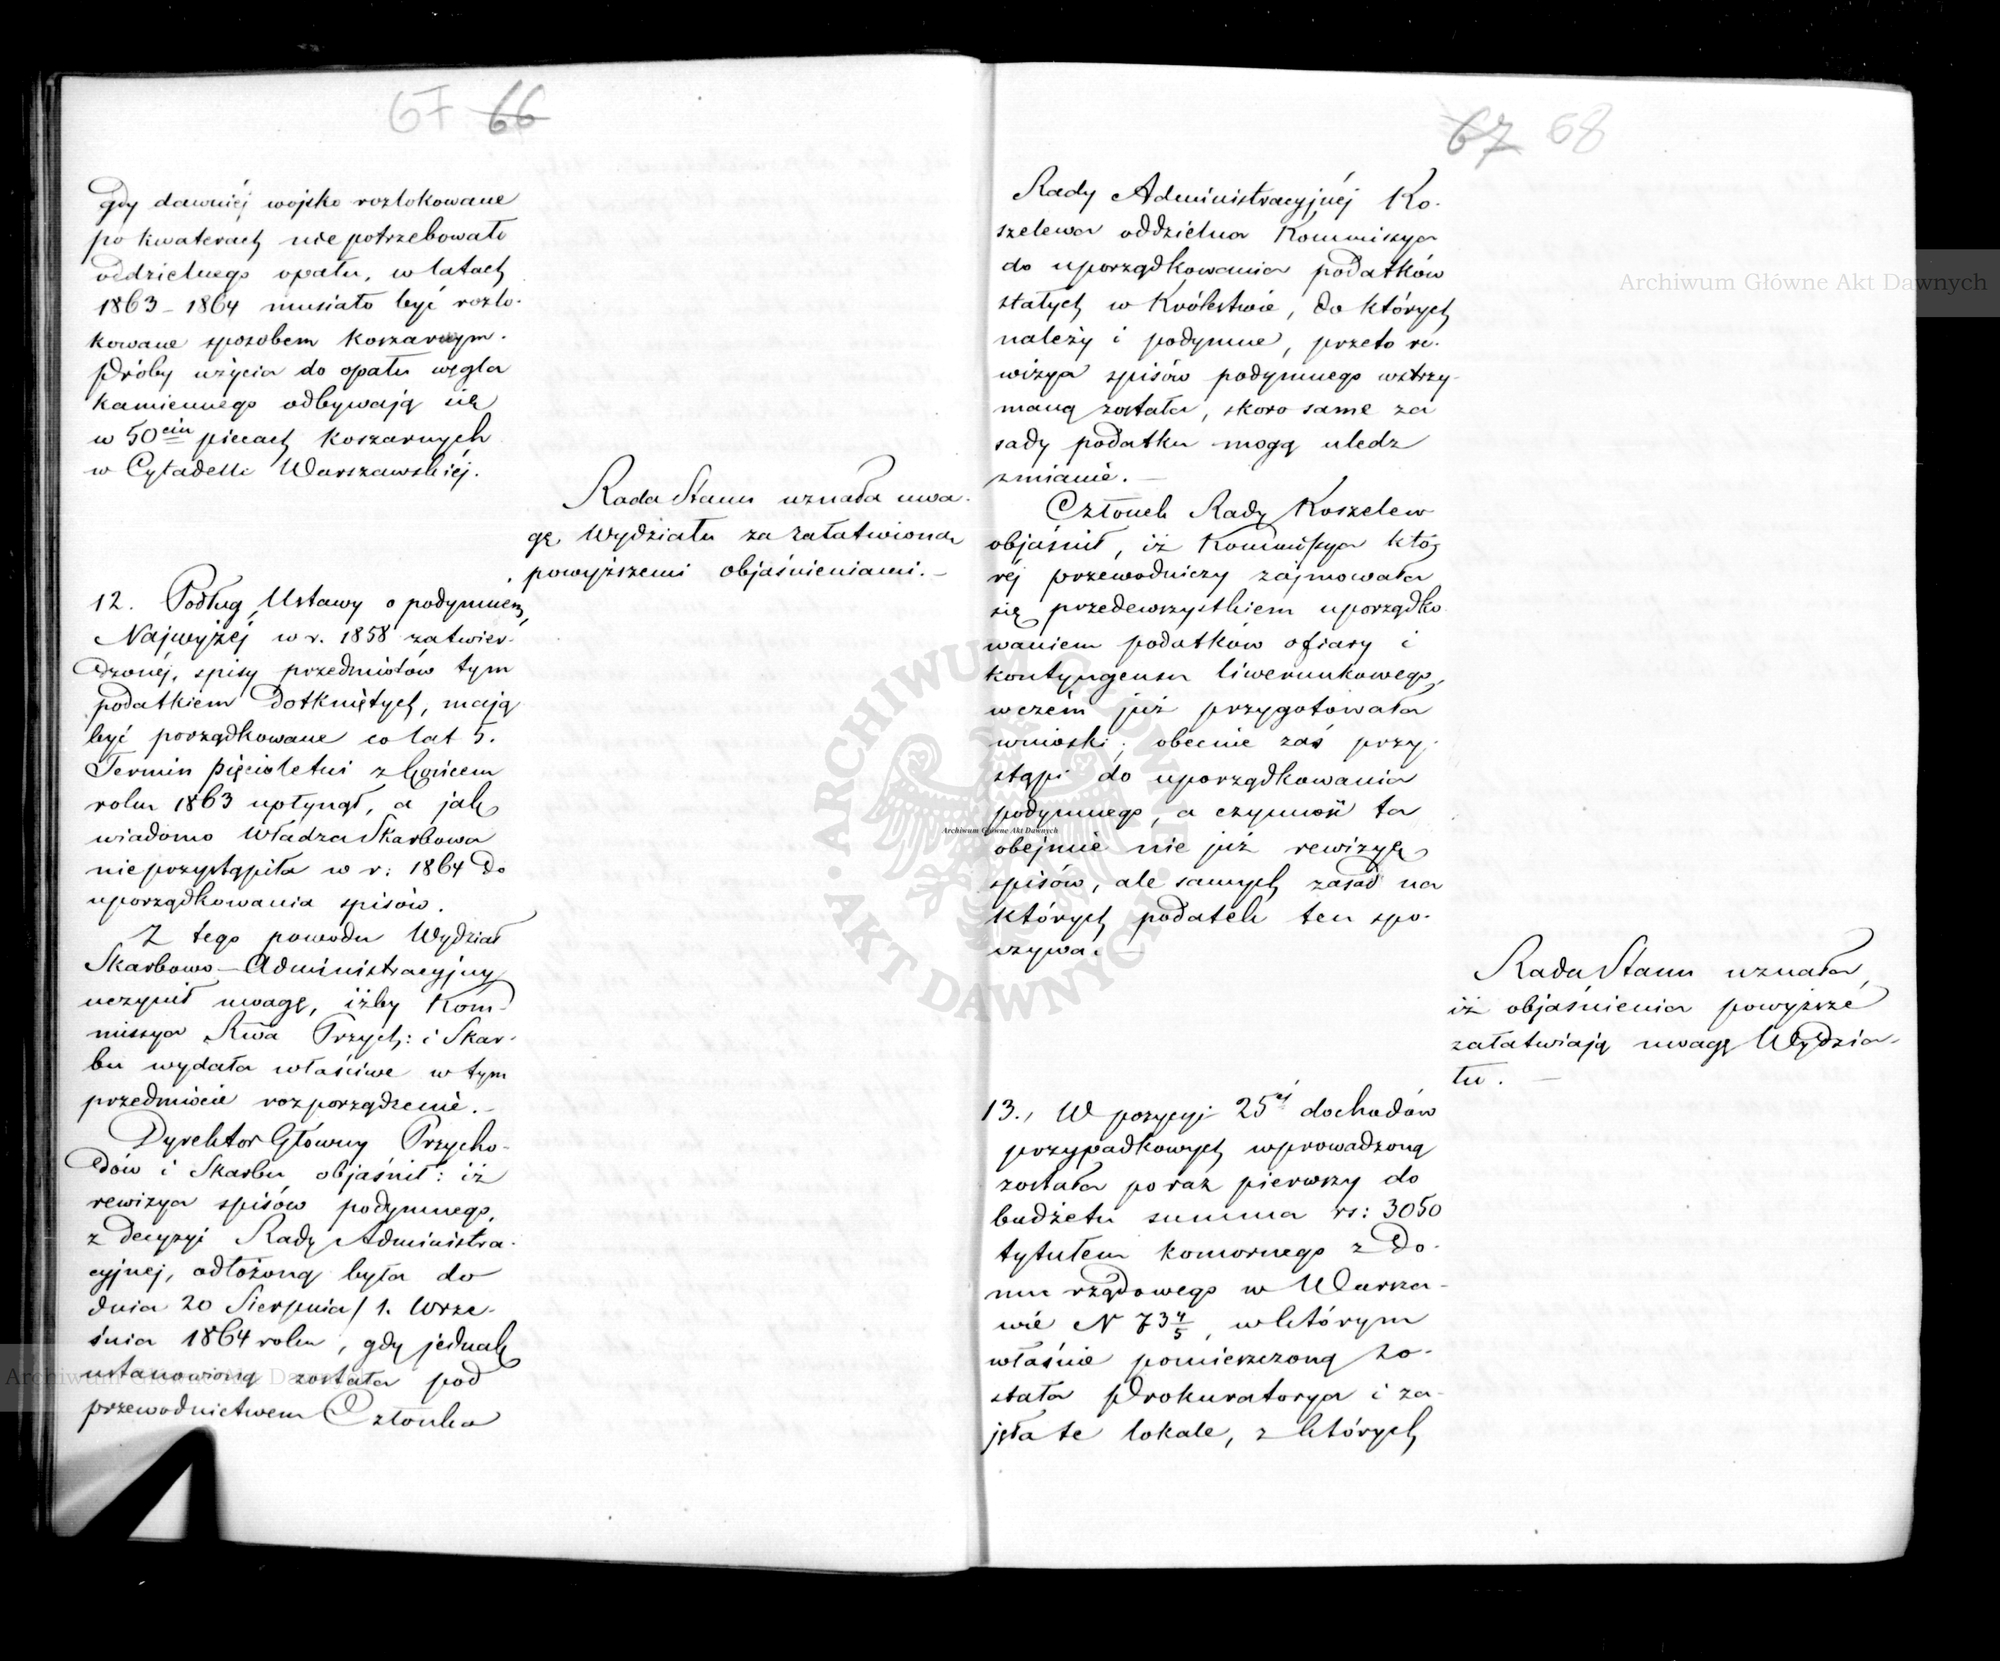 67 66
gdy dawniéj wojsko rozlokowane
po kwaterach nie potrzebowało
oddzielnego opału, w latach
1863 – 1864 musiało być rozlo-
kowane sposobem koszarnym.
Próby użycia do opału węgla
kamiennego odbywają się
w 50ciu piecach koszarnych
w Cytadelli Warszawskiéj.
Rada Stanu uznała uwa-
gę Wydziału za załatwioną
powyższemi objaśnieniami. –
12. Podług Ustawy o podymnem,
Najwyżéj w r. 1858 zatwier-
dzonéj, spisy przedmiotów tym
podatkiem dotkniętych, mają
być porządkowane co lat 5.
Termin pięcioletni z końcem
roku 1863 upłynął, a jak
wiadomo Władza Skarbowa
nie przystąpiła w r: 1864 do
uporządkowania spisów.
Z tego powodu Wydział
Skarbowo – Administracyjny
uczynił uwagę, iżby Kom-
missya Rwa Przych: i Skar-
bu wydała właściwe w tym
przedmiocie rozporządzenie. –
Dyrektor Główny Przycho-
dów i Skarbu objaśnił: iż
rewizya spisów podymnego,
z decyzyi Rady Administra-
cyjnej, odłożoną była do
dnia 20 Sierpnia / 1. Wrze-
śnia 1864 roku, gdy jednak
ustanowioną została pod
przewodnictwem Członka
67 68
Rady Administracyjnéj Ko-
szelewa oddzielna Kommissya
do uporządkowania podatków
stałych w Królestwie, do których
należy i podymne, przeto re-
wizya spisów podymnego wstrzy-
maną została, skoro same za
sady podatku mogą uledz
zmianie. –
Członek Rady Koszelew
objaśnił, iż Kommissya któ-
réj przewodniczy zajmowała
się przedewszystkiem uporządko
waniem podatków ofiary i
kontyngensu liwerunkowego,
w czém już przygotowała
wnioski; obecnie zaś przy-
stąpi do uporządkowania
podymnego, a czynność ta
obejmie nie już rewizyę
spisów, ale samych zasad na
których podatek ten spo-
czywa. –
Rada Stanu uznała,
iż objaśnienia powyższe
załatwiają uwagę Wydzia-
łu. –
13., W pozycyi 25éj dochodów
przypadkowych wprowadzoną
została po raz pierwszy do
budżetu summa rs: 3050
tytułem komornego z do-
mu rządowego w Warsza-
wie N 73 4/5, w którym
właśnie pomieszczoną zo-
stała Prokuratorya i za-
jęła te lokale, z których
Archiwum Główne Akt Dawnych
Archiwum Główne Akt Dawnych
Archiwum Główne Akt Dawnych
ARCHIWUM GŁÓWNE AKT DAWNYCH